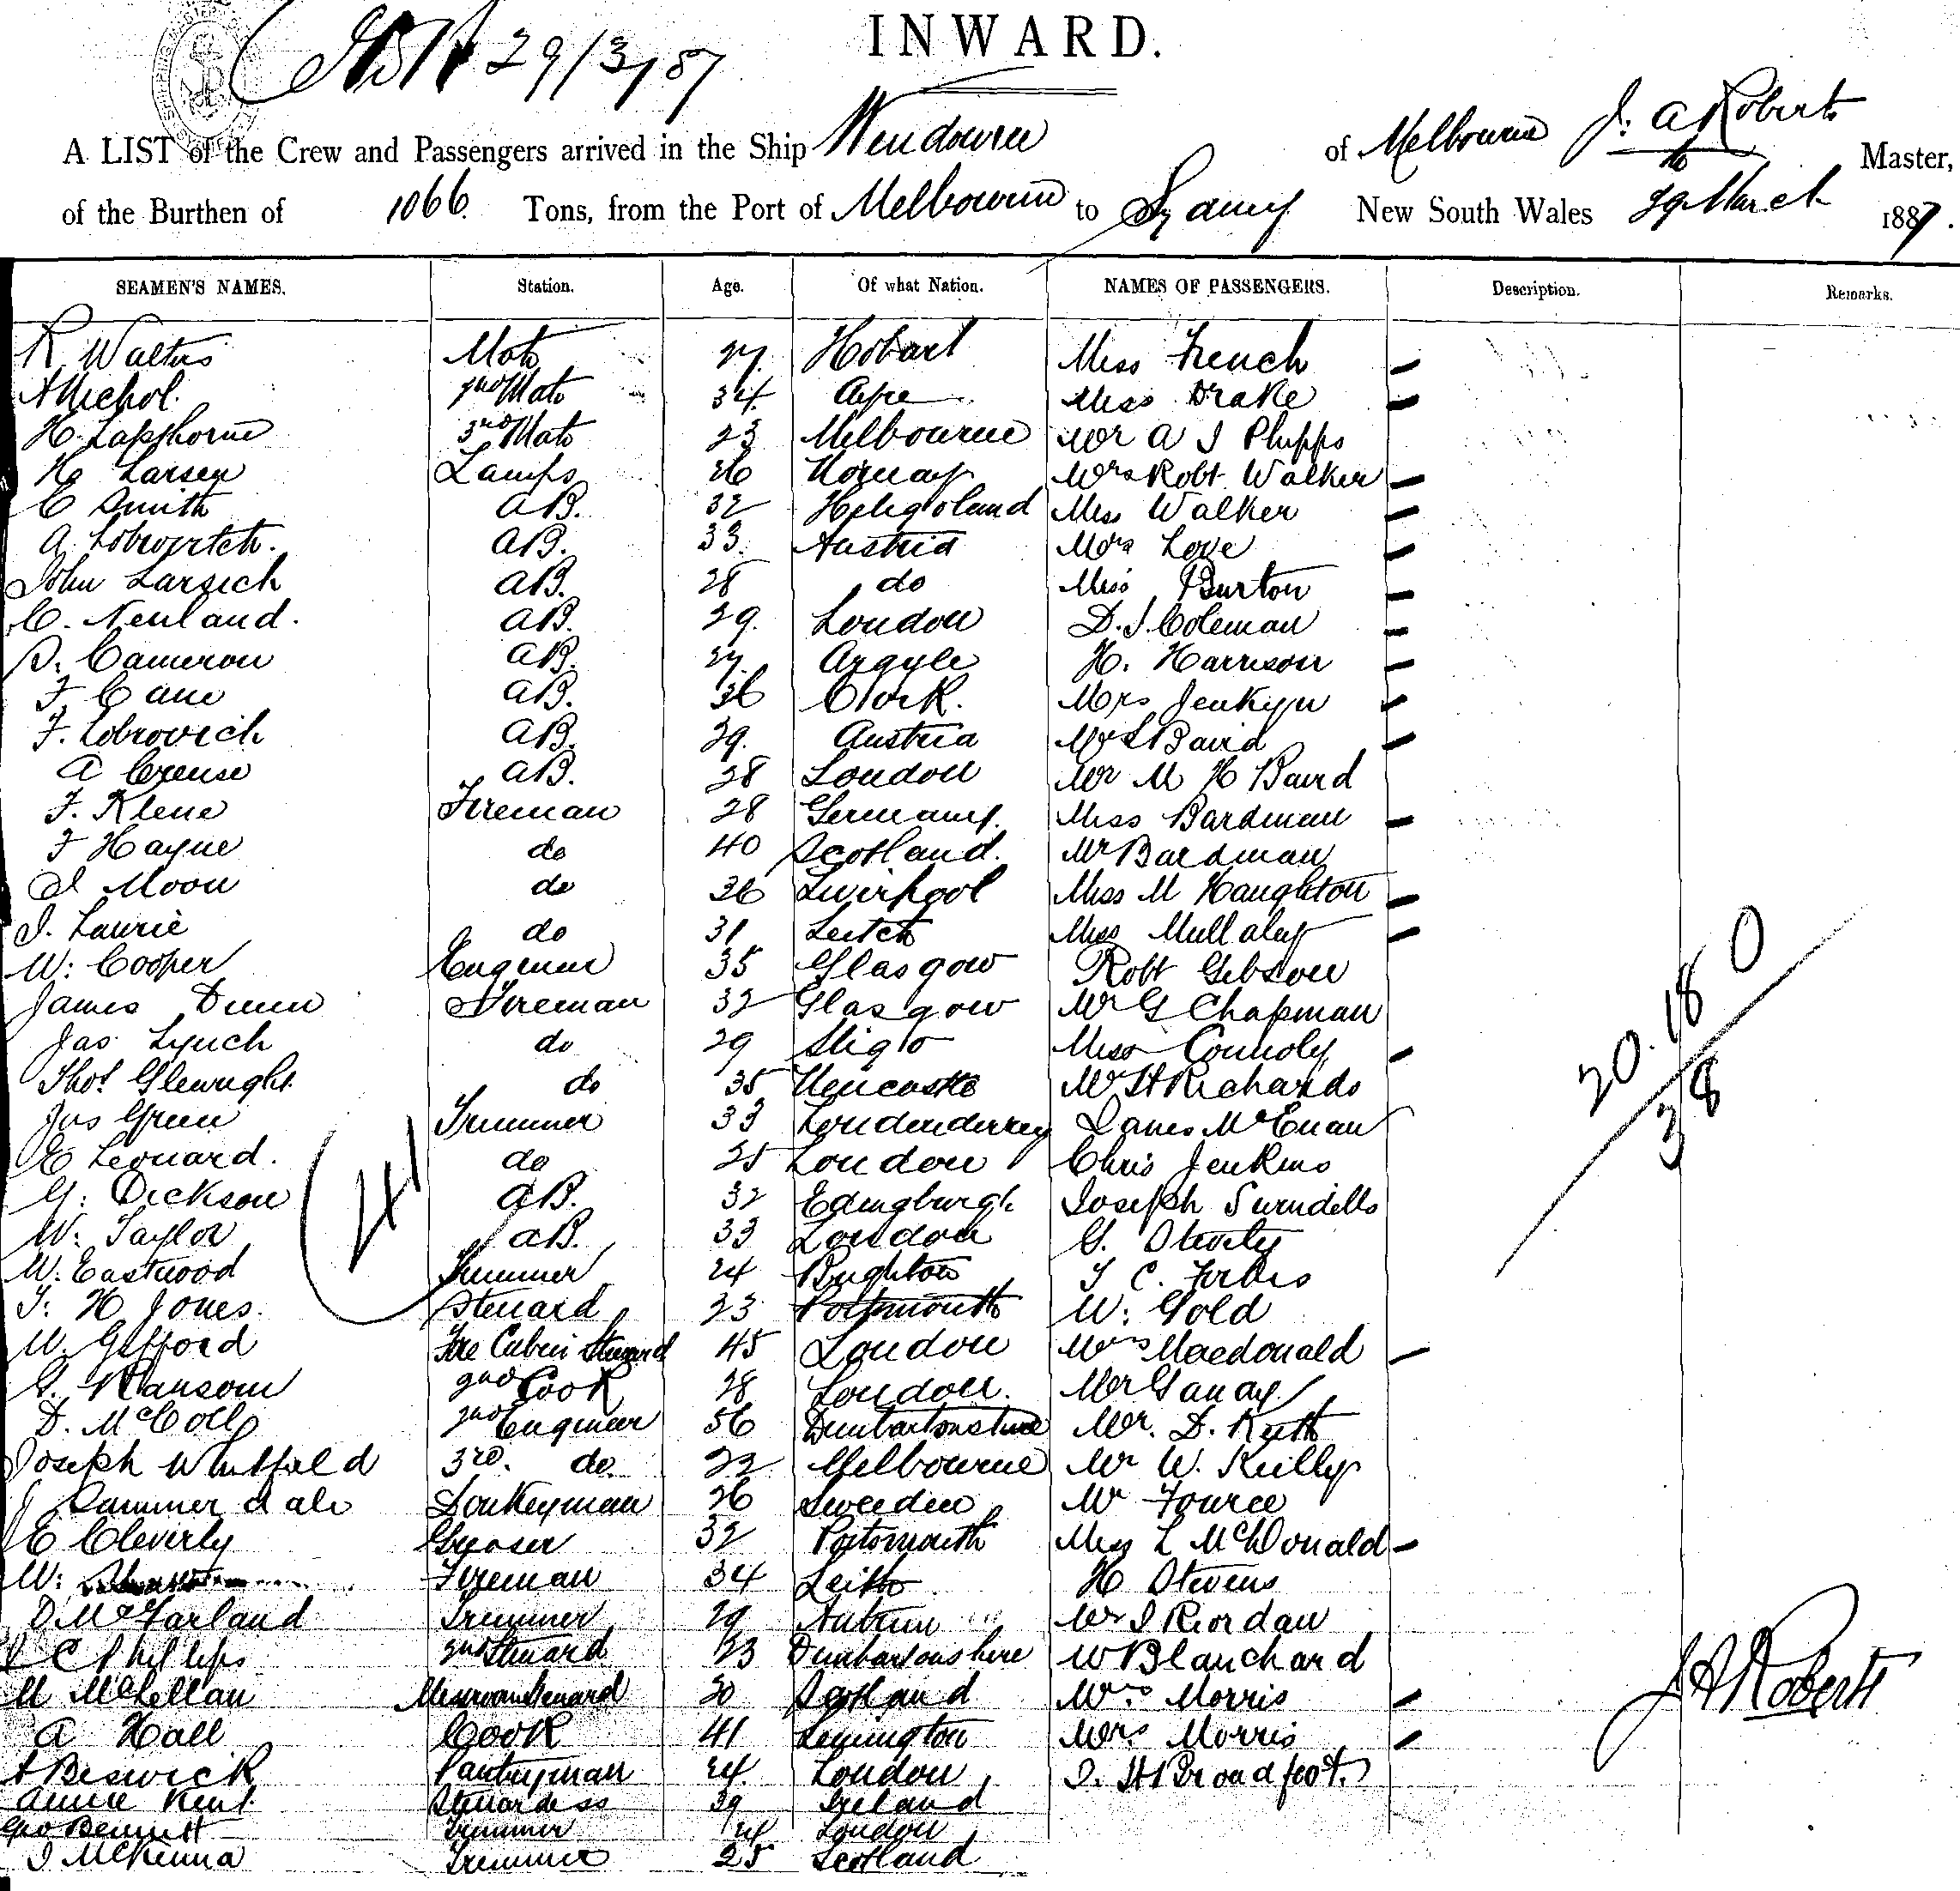 29/3/87
INWARD.
A LIST of the Crew and Passengers arrived in the Ship Wendouree of Melbourne J. A Roberts Master,
of the Burthen of 1066 Tons, from the Port of Melbourne to Sydney New South Wales 29 March 1887.
SEAMEN'S NAMES. Station. Age. Of what Nation. NAMES OF PASSENGERS. Description. Remarks.
R Walters Mate 27. Hobart Miss French
A Nichol. 2nd Mate 34. Miss Drake
H. Lapthorne 3rd Mate 23 Melbourne Mr A J Phipps
H Larsen Lamps 26 Norway Mrs Robt Walker
C Smith AB. 32 Heligoland Miss Walker
A AB. 33. Austria Mrs Love
John Larsich AB. 28 do Miss Burton
C. Neuland. AB. 29. London D. J. Coleman
D. Cameron AB. 27. Argyle H. Harrison
F Cane AB. 36 Cork. Mrs Jenkyn
F. Lobrovich AB. 29. Austria Mrs Baird
A Creuse AB. 28 London Mr M H Baird
F. Klene Fireman 28 Germany. Miss Bardman
F Hayne do 40 Scotland. Mr Bardman
J Moon do 36 Liverpool Miss M Haughton
J. Laurie do 31 Miss Mullaly
W: Cooper Engineer 35 Glasgow Robt Gibson
James Dunn Fireman 32 Glasgow Mr G Chapman
Jas Lynch do 29 Sligo Miss Connoly
Thos Glewright do 35 Newcastle Mr H Richards
Jas Green Trimmer 33 Londonderrey James McEuan
E Leonard. do 25 London Chris Jenkins
G: Dickson AB. 32 Edingburgh Joseph Swindells
W: Taylor AB. 33 London G.
W. Eastwood Trimmer 24 Brighton T C. Forbes
T. H Jones. Steward 23 Portsmouth W: Gold
W. Gifford Fore Cabin Steward 45 London Mrs Macdonald
G. Ransom 2nd Cook 28 London. Mr
D. McColl 2nd Engineer 56 Dunbartonshire Mr. D. Keith
Joseph Whitfield 3rd. do. 22 Melbourne Mr W. Reilly
J Sammerdale Donkeyman 26 Sweden Mr Fource
C Cleverly Greaser 32 Portsmouth Miss L McDonald
W: Fireman 34 Leith H Stevens
D McFarland Trimmer 29 Antrim Mr J Riordan
J C Phillips 2nd Steward 23 Dunbartonshire W Blanchard
M McLellan Messroom Steward 20 Scotland Mrs Morris
A Hall Cook 41 Mrs Morris
A Beswick Pantryman 24. London J. H Broadfoot
Annie Kent Stewardess 39 Ireland
Geo Bennett Trimmer 24 London
J McKenna Trimmer 25 Scotland
41
20.18 0
38
J A Roberts